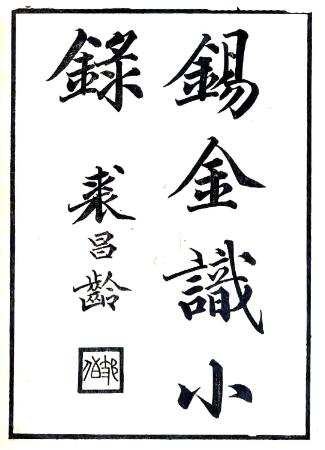 錫金識小
錄
裘昌齡